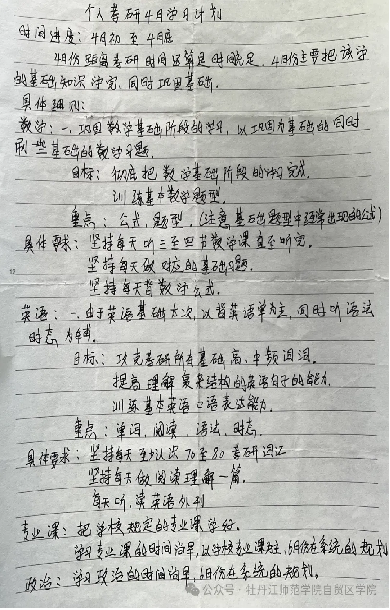 个人考研4月学习计划
时间进度：4月初至4月底
4月份距离考研时间还算是时间充足，4月份主要把该学
的基础知识学完，同时巩固基础。
具体细则：
数学：一、巩固数学基础阶段的学习，以巩固为基础的同时
刷一些基础的数学习题。
目标：彻底把数学基础阶段的学习完成
训练基本数学题型。
重点：公式，题型，(注意基础题型中经常出现的公式)
具体要求：坚持每天听三至四节数学课直至听完。
坚持每天做对应的基础习题。
坚持每天背数学公式。
英语：一、由于英语基础太次，以背英语单词为主，同时听语法
时态为辅。
目标：攻克考研所有基础高、中频词汇。
提高理解复杂结构的英语句子的能力。
训练基本英语口语表达能力。
重点：单词，阅读，语法，时态。
具体要求：坚持每天至少认识70至80考研词汇
坚持每天做阅读理解一篇。
每天听、读英语外刊
专业课：把学校规定的专业课学好。
学习专业课的时间尚早，以学校专业课为主，6月份在系统的规划
政治：学习政治的时间尚早，6月份在系统的规划。
公众号·牡丹江师范学院自贸区学院